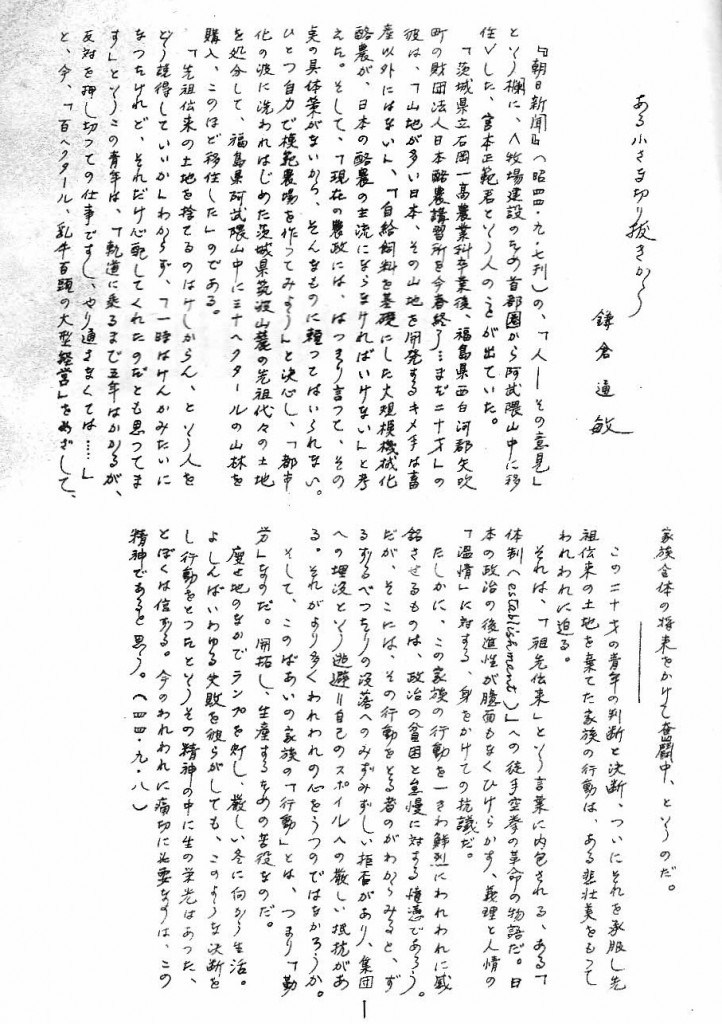 ある小さな切り抜きから
鎌倉通敏
『朝日新聞』(昭四四・九・七刊)の、「人――その意見」
という欄に、〈牧場建設のため首都圏から阿武隈山中に移
住〉した、宮本正範君という人のことが出ていた。
「茨城県立石岡一高農業科卒業後、福島県西白河郡矢吹
町の財団法人日本酪農講習所を今春終了…まだ二十才」の
彼は、「山地が多い日本、その山地を開発するキメ手は畜
産以外にはない」、「自給飼料を基礎にした大規模機械化
酪農が、日本の酪農の主流にならなければいけない」と考
えた。そして、「現在の農政には、はっきり言って、その
点の具体策がないから、そんなものに頼ってはいられない。
ひとつ自力で模範農場を作ってみよう」と決心し、「都市
化の波に洗われはじめた茨城県筑波山麓の先祖代々の土地
を処分して、福島県阿武隈山中に三十ヘクタールの山林を
購入、このほど移住した」のである。
「先祖伝来の土地を捨てるのはけしからん、という人を
どう説得していいかわからず、「一時はけんかみたいに
なつたけれど、それだけ心配してくれたのだとも思つてま
す」というこの青年は、「軌道に乗るまで五年はかかるが、
反対を押し切つての仕事ですし、やり通さなくては……」
と、今、「百ヘクタール、乳牛百頭の大型経営」をめざして、
家族全体の将来をかけて奮闘中、というのだ。
この二十才の青年の判断と決断、ついにそれを承服し先
祖伝来の土地を棄てた家族の行動は、ある悲壮美をもつて
われわれに迫る。
それは、「祖先伝来」という言葉に内包される、ある「
体制(establishment)」への徒手空拳の革命の物語だ。日
本の政治の後進性が臆面もなくひけらかす、義理と人情の
「温情」に対する、身をかけての抗議だ。
たしかに、この家族の行動を一きわ鮮烈にわれわれに感
銘させるものは、政治の貧困と怠慢に対する憤懣であろう。
だが、そこには、その行動をとる者のがわからみると、ず
るずるべつたりの没落へのみずみずしい拒否があり、集団
への埋没という逃避=自己のスポイルへの厳しい抵抗があ
る。それがより多くわれわれの心をうつのではなかろうか。
そして、このばあいの家族の「行動」とは、つまり「勤
労」なのだ。開拓し、生産するための苦役なのだ。
痩せ地のなかでランプを灯し、厳しい冬に向かう生活。
よしんばいわゆる失敗を彼らがしても、このような決断を
し行動をとつたというその精神の中に生の栄光はあつた、
とぼくは信ずる。今のわれわれに痛切に必要なのは、この
精神であると思う。(四四・九・八)
1